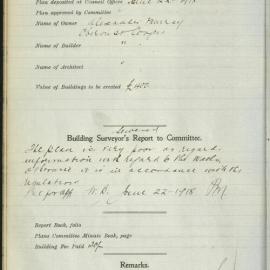 Plan deposited at Council Offices June 22 1918
Plan approved by Committee "
Name of Owner Alexander Murray
Oberon St Coogee
Name of Builder "
Name of Architect "
Value of Buildings to be erected £400
Sewered
Building Surveyor's Report to Committee.
The plan is very poor as regards
information with regard to the
otherwise it is in accordance with the
regulations
Rec for aff W.B. June 22-1918
Report Book, folio
Plans Committee Minute Book, page
Building Fee Paid 20/-
Remarks.